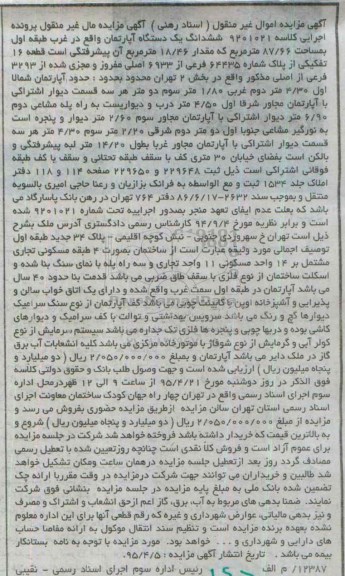 آگهی مزایده اموال غیر منقول ( اسناد رهنی )  آگهی مزایده مال غیر منقول پرونده
اجرایی کلاسه ۹۲۰۱۰۲۱ ششدانگ یک دستگاه آپارتمان واقع در غرب طبقه اول
بمساحت ۸۷/۶۶ مترمربع که مقدار ۱۸/۴۶ مترمربع آن پیشرفتگی است قطعه ۱۶
تفکیکی از پلاک شماره ۶۴۴۳۵ فرعی از ۶۹۳۳ اصلی مفروز و مجزی شده از ۳۲۹۳
فرعی از اصلی مذکور واقع در بخش ۲ تهران محدود بحدود : حدود آپارتمان شمالا
اول ۴/۳۰ متر دوم غربی ۱/۸۰ متر سوم دو متر هر سه قسمت دیوار اشتراکی
با آپارتمان مجاور شرقا اول ۴/۵۰ متر درب و دیواریست به راه پله مشاعی دوم
۶/۹۰ متر دیوار اشتراکی با آپارتمان مجاور سوم ۲/۶۰ متر دیوار و پنجره است
به نورگیر مشاعی جنوبا اول دو متر دوم شرقی ۲/۲۰ متر سوم ۴/۳۰ متر هر سه
قسمت دیوار اشتراکی با آپارتمان مجاور غربا بطول ۱۴/۲۰ متر لبه پیشرفتگی و
بالکن است بفضای خیابان ۳۰ متری کف با سقف طبقه تحتانی و سقف با کف طبقه
فوقانی اشتراکی است ذیل ثبت ۲۲۹۶۴۸ و ۲۲۹۶۵۰ صفحه ۱۱۴ و ۱۱۸ دفتر
املاک جلد ۱۵۳۴ ثبت و مع الواسطه به فرانک بزازیان و رعنا حاجی امیری بالسویه
منتقل و بموجب سند ۲۶۳۲-۸۶/۶/۱۷ دفتر ۷۶۴ تهران در رهن بانک پاسارگاد می
باشد که بعلت عدم ایفای تعهد منجر بصدور اجراییه تحت شماره ۹۲۰۱۰۲۱ شده
است و برابر نظریه مورخ ۹۴/۹/۴ کارشناس رسمی دادگستری آدرس ملک بشرح
ذیل است تهران خ سهروردی جنوبی - نبش کوچه اقلیمی - پلاک ۳۴ جدید طبقه اول
توصیف اجمالی مورد وثیقه عبارت است از ساختمان بصورت ۴ طبقه مسکونی تجاری
مشتمل بر ۱۴ واحد مسکونی ۱۱ واحد تجاری و سه راه پله با نمای سنگ بنا شده و
اسکلت ساختمان از نوع فلزی با سقف طاق ضربی می باشد قدمت بنا حدود ۴۰ سال
می باشد آپارتمان در طبقه اول سمت غرب واقع شده و دارای یک اتاق خواب سالن و
پذیرایی و آشپزخانه اوپن با کابینت چوبی می باشد کف آپارتمان از نوع سنگ سرامیک
دیوارها گچ و رنگ می باشد سرویس بهداشتی و توالت با کف سرامیک و دیوارهای
کاشی بوده و دربها چوبی و پنجره ها فلزی تک جداره می باشد سیستم سرمایش از نوع
کولر آبی و گرمایش از نوع شوفاژ با موتورخانه مرکزی می باشد کلیه انشعابات آب برق
گاز در ملک دایر می باشد آپارتمان و بمبلغ ۲/۰۵۰/۰۰۰/۰۰۰ ریال ( دو میلیارد و
پنجاه میلیون ریال ) ارزیابی شده است و جهت وصول طلب بانک و حقوق دولتی کلاسه
فوق الذکر در روز دوشنبه مورخ ۹۵/۴/۲۱ از ساعت ۹ الی ۱۲ ظهردرمحل اداره
سوم اجرای اسناد رسمی واقع در تهران چهار راه جهان کودک ساختمان معاونت اجرای
اسناد رسمی استان تهران سالن مزایده ازطریق مزایده حضوری بفروش می رسد و
مزایده از مبلغ ۲/۰۵۰/۰۰۰/۰۰۰ ریال ( دو میلیارد و پنجاه میلیون ریال ) شروع و
به بالاترین قیمت که خریدار داشته باشد فروخته خواهد شد شرکت در جلسه مزایده
برای عموم آزاد است و فروش کلا نقدی است چنانچه روزتعیین شده با تعطیل رسمی
مصادف گردد روز بعد ازتعطیل جلسه مزایده درهمان ساعت ومکان تشکیل خواهد
شد طالبین و خریداران می توانند جهت شرکت درمزایده در وقت مقرربا ارائه چک
تضمین شده بانک ملی به مبلغ پایه مزایده در جلسه مزایده بنشانی فوق شرکت
نمایند. ضمنا بدهی های مربوط به آب، برق، گاز اعم ازحق انشعاب و اشتراک و مصرف
و نیز بدهی مالیاتی، عوارض شهرداری و غیره که رقم قطعی آنها برای این اداره معلوم
نشده بعهده برنده مزایده است و تنظیم سند انتقال موکول به ارائه مفاصا حساب
های دارایی و شهرداری و ... خواهد بود. مورد مزایده با توجه به نامه بستانکار
بیمه می باشد . تاریخ انتشار آگهی مزایده : ۹۵/۴/۵
۱۲۳۸۷/ م الف رئیس اداره سوم اجرای اسناد رسمی - نقیبی